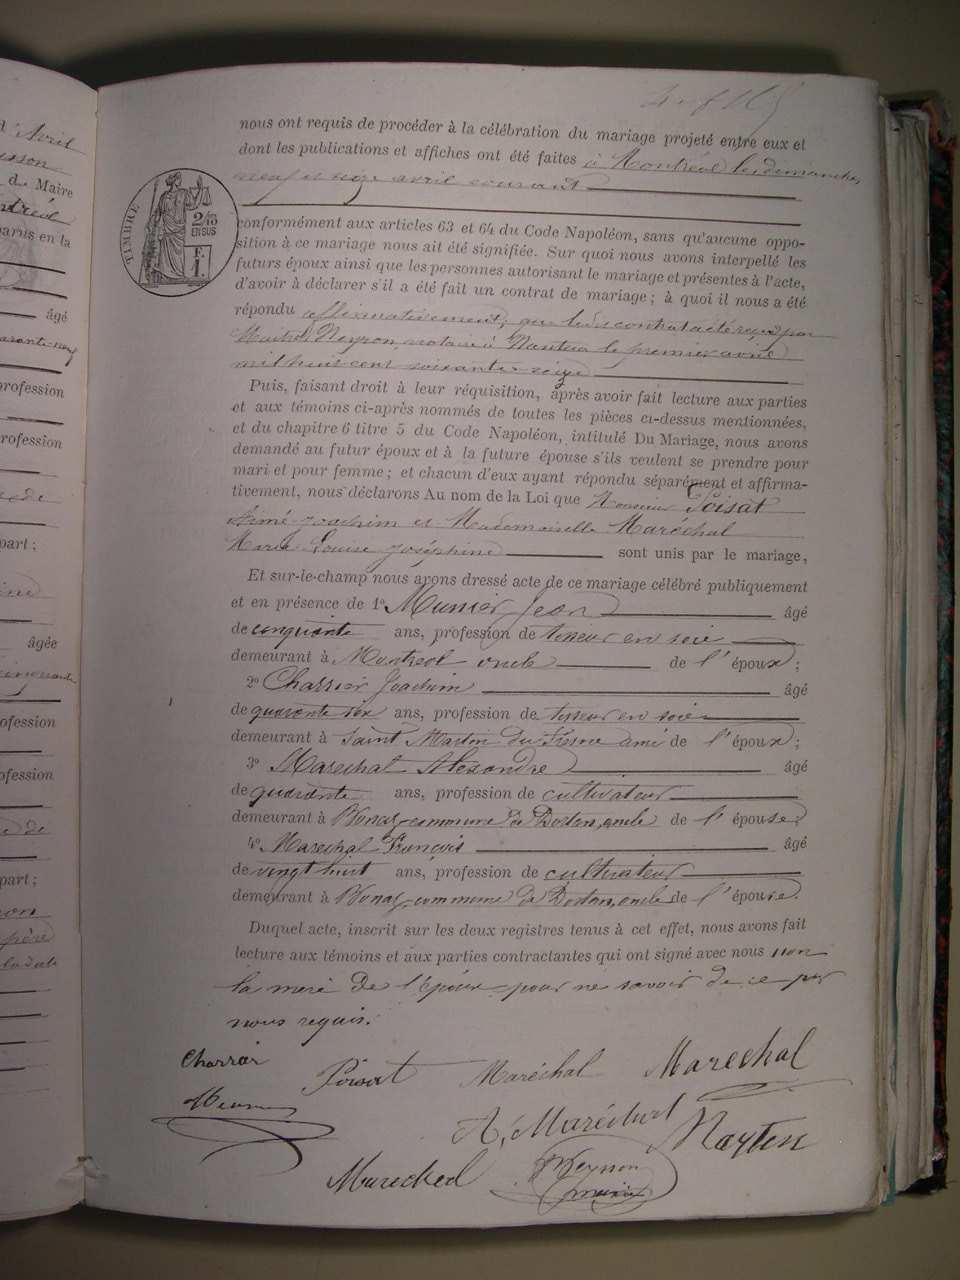 Avril
du Maire
parus en la
âgé
profession
profession
part ;
âgée
profession
profession
de
part ;
père
nous ont requis de procéder à la célébration du mariage projeté entre eux et
dont les publications et affiches ont été faites à Montréal les dimanches
neuf et seize avril courant
TIMBRE
2/10
EN SUS
F.
1.
conformément aux articles 63 et 64 du Code Napoléon, sans qu'aucune oppo-
sition à ce mariage nous ait été signifiée. Sur quoi nous avons interpellé les
futurs époux ainsi que les personnes autorisant le mariage et présentes à l'acte,
d'avoir à déclarer s'il a été fait un contrat de mariage ; à quoi il nous a été
répondu affirmativement, que ledit contrat a été reçu par
Maître Neyron, notaire à Nantua le premier avril
mil huit cent soixante seize
Puis, faisant droit à leur réquisition, après avoir fait lecture aux parties
et aux témoins ci-après nommés de toutes les pièces ci-dessus mentionnées,
et du chapitre 6 titre 5 du Code Napoléon, intitulé Du Mariage, nous avons
demandé au futur époux et à la future épouse s'ils veulent se prendre pour
mari et pour femme ; et chacun d'eux ayant répondu séparément et affirma-
tivement, nous déclarons Au nom de la Loi que Monsieur Poisat
Aimé Joachim et Mademoiselle Maréchal
Marie Louise Joséphine sont unis par le mariage,
Et sur-le-champ nous avons dressé acte de ce mariage célébré publiquement
et en présence de 1º Munier Jean âgé
de cinquante ans, profession de tisseur en soie
demeurant à Montréal oncle de l'époux ;
2º Charrier Joachim âgé
de quarante six ans, profession de tisseur en soie
demeurant à Saint Martin du Fresne ami de l'époux ;
3º Maréchal Alexandre âgé
de quarante ans, profession de cultivateur
demeurant à Bonaz, commune de Dortan, oncle de l'épouse ;
4º Maréchal François âgé
de vingt huit ans, profession de cultivateur
demeurant à Bonaz, commune de Dortan, oncle de l'épouse.
Duquel acte, inscrit sur les deux registres tenus à cet effet, nous avons fait
lecture aux témoins et aux parties contractantes qui ont signé avec nous non
la mère de l'époux pour ne savoir de ce par
nous requis.
Charrier Poisat Maréchal Marechal
A, Maréchal
Marechal